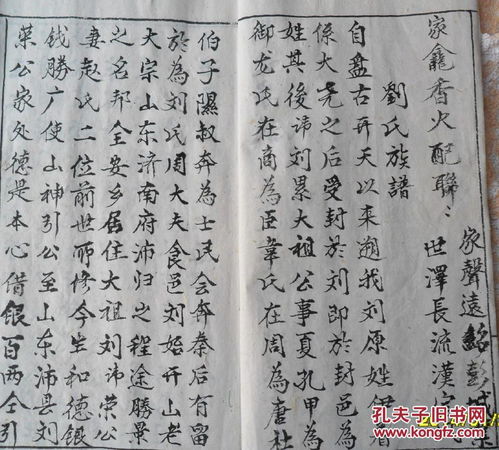 家龕香火配聯：
家聲遠紹彭城
世澤長流漢
劉氏族譜
自盘古开天以來遡我刘原姓
係大尧之后受封於刘即於封邑為
姓其後諱刘累大祖公事夏孔甲為
御龙氏在商為臣韋氏在周為唐社
伯子隰叔奔為士民会奔秦后有留
於為刘氏周大夫食邑刘始开山老
大宗山东济南府沛归之程途勝景
之名邦全安乡居住大祖刘讳荣公
妻赵氏二位前世所修今生和德銀
钱勝广使山神引公至山东沛县刘
荣公家处德是本心借銀百两仝引
孔夫子旧书网